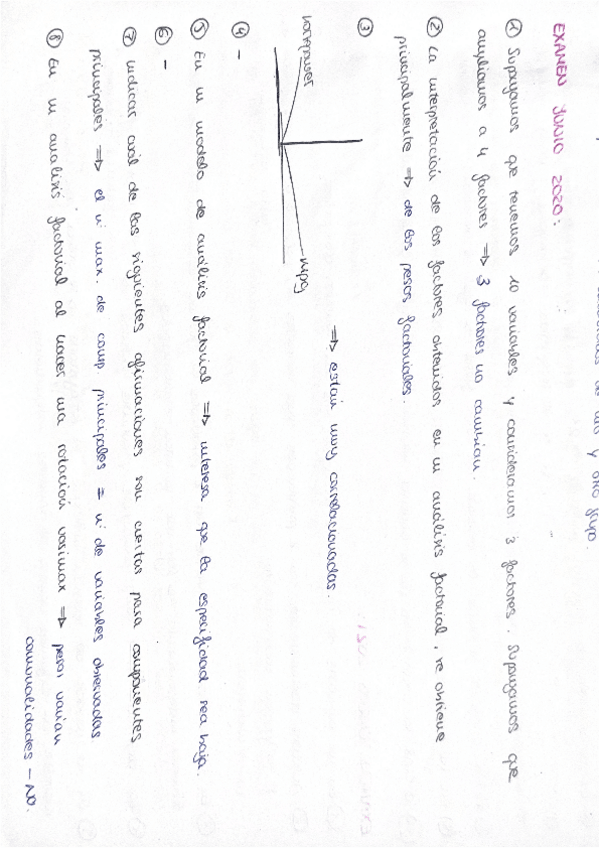 de uno y otro grupo.
EXAMEN JUNIO 2020:
① Supongamos que tenemos 10 variables y consideramos 3 factores. Supongamos que
ampliamos a 4 factores => 3 factores no cambian.
② La interpretación de los factores obtenidos en un análisis factorial, se obtiene
principalmente => de los pesos factoriales.
③
horsepower
mpg
=> están muy correlacionadas.
④ -
⑤ En un modelo de análisis factorial => interesa que la especifidad sea baja.
⑥ -
⑦ Indicar cual de las siguientes afirmaciones son ciertas para componentes
principales => el nº max. de comp. principales = nº de variables observadas
⑧ En un analisis factorial al hacer una rotación varimax => pesos varian
comunalidades - NO.